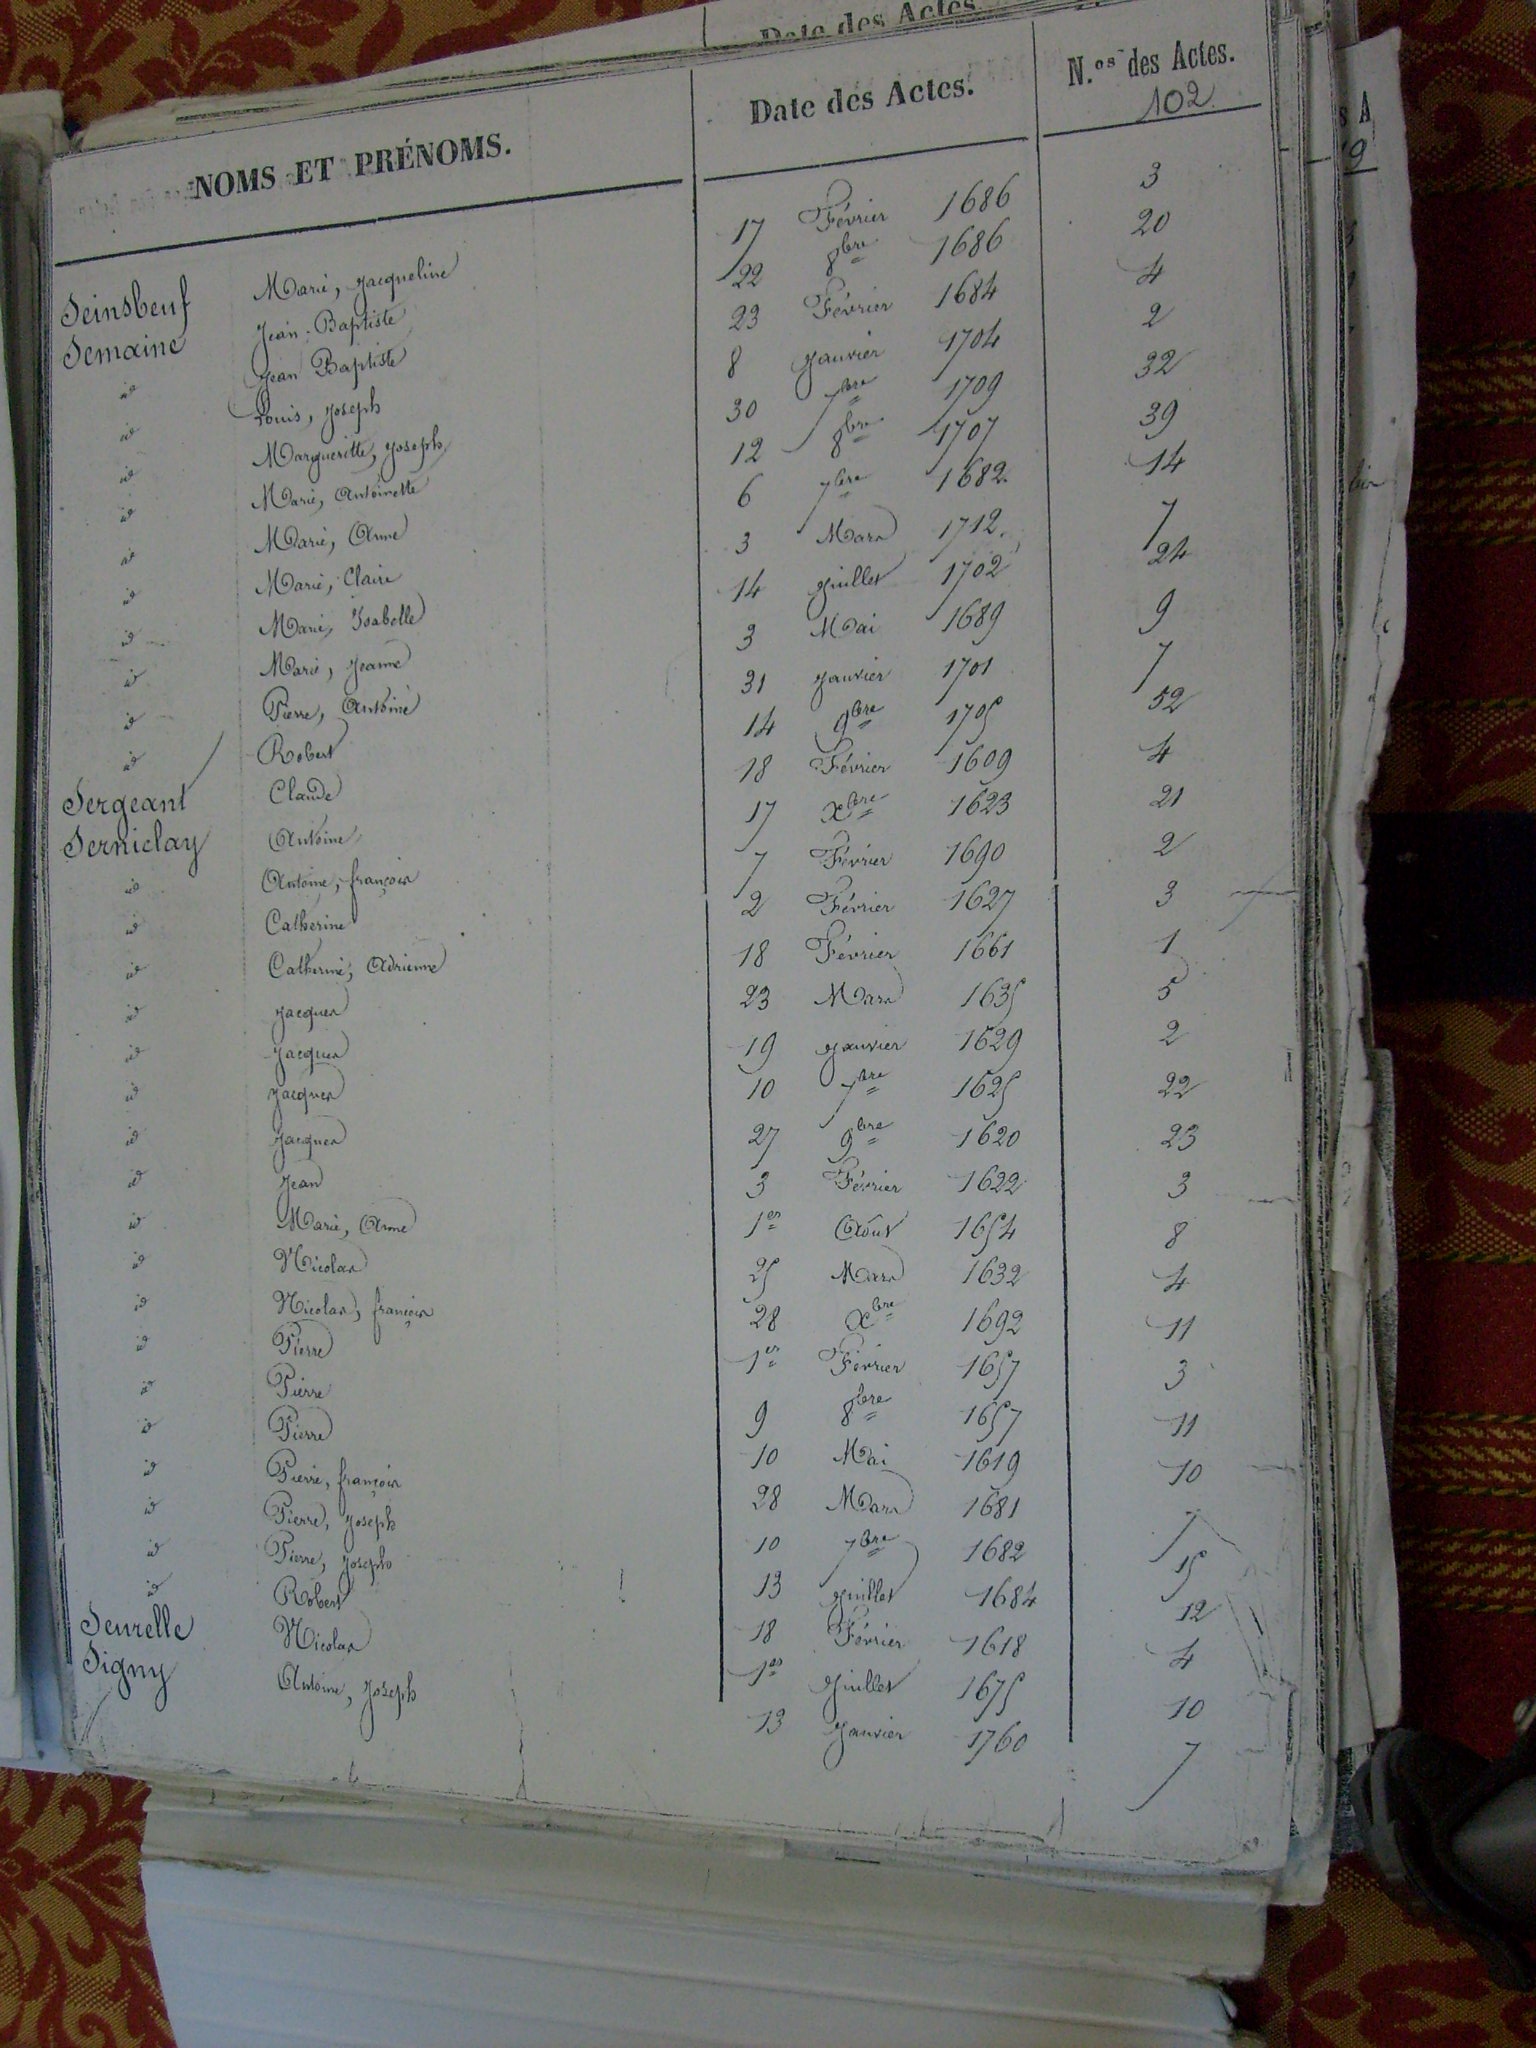 Date des Actes
NOMS ET PRÉNOMS. Date des Actes. N.os des Actes.
102
Seinsbeuf Marie, Jacqueline 17 Février 1686 3
Semaine Jean-Baptiste 22 8bre 1686 20
id Jean Baptiste 23 Février 1684 4
id Louis, Joseph 8 Janvier 1704 2
id Margueritte, Joseph 30 7bre 1709 32
id Marie, Antoinette 12 8bre 1707 39
id Marie, Anne 6 7bre 1682 14
id Marie, Claire 3 Mars 1712 7
id Marie, Isabelle 14 Juillet 1702 24
id Marie, Jeanne 3 Mai 1689 9
id Pierre, Antoine 31 Janvier 1701 7
id Robert 14 9bre 1705 52
Sergeant Claude 18 Février 1609 4
Serniclay Antoine 17 Xbre 1623 21
id Antoine, françois 7 Février 1690 2
id Catherine 2 Février 1627 3
id Catherine, Adrienne 18 Février 1661 1
id Jacques 23 Mars 1635 5
id Jacques 19 Janvier 1629 2
id Jacques 10 7bre 1625 22
id Jacques 27 9bre 1620 23
id Jean 3 Février 1622 3
id Marie, Anne 1er Août 1654 8
id Nicolas 25 Mars 1632 4
id Nicolas, françois 28 Xbre 1692 11
id Pierre 1er Février 1657 3
id Pierre 9 8bre 1657 11
id Pierre 10 Mai 1619 10
id Pierre, françois 28 Mars 1681 7
id Pierre, Joseph 10 7bre 1682 15
id Pierre, Joseph 13 Juillet 1684 12
id Robert 18 Février 1618 4
Seurelle Nicolas 1er Juillet 1675 10
Signy Antoine, Joseph 13 Janvier 1760 7